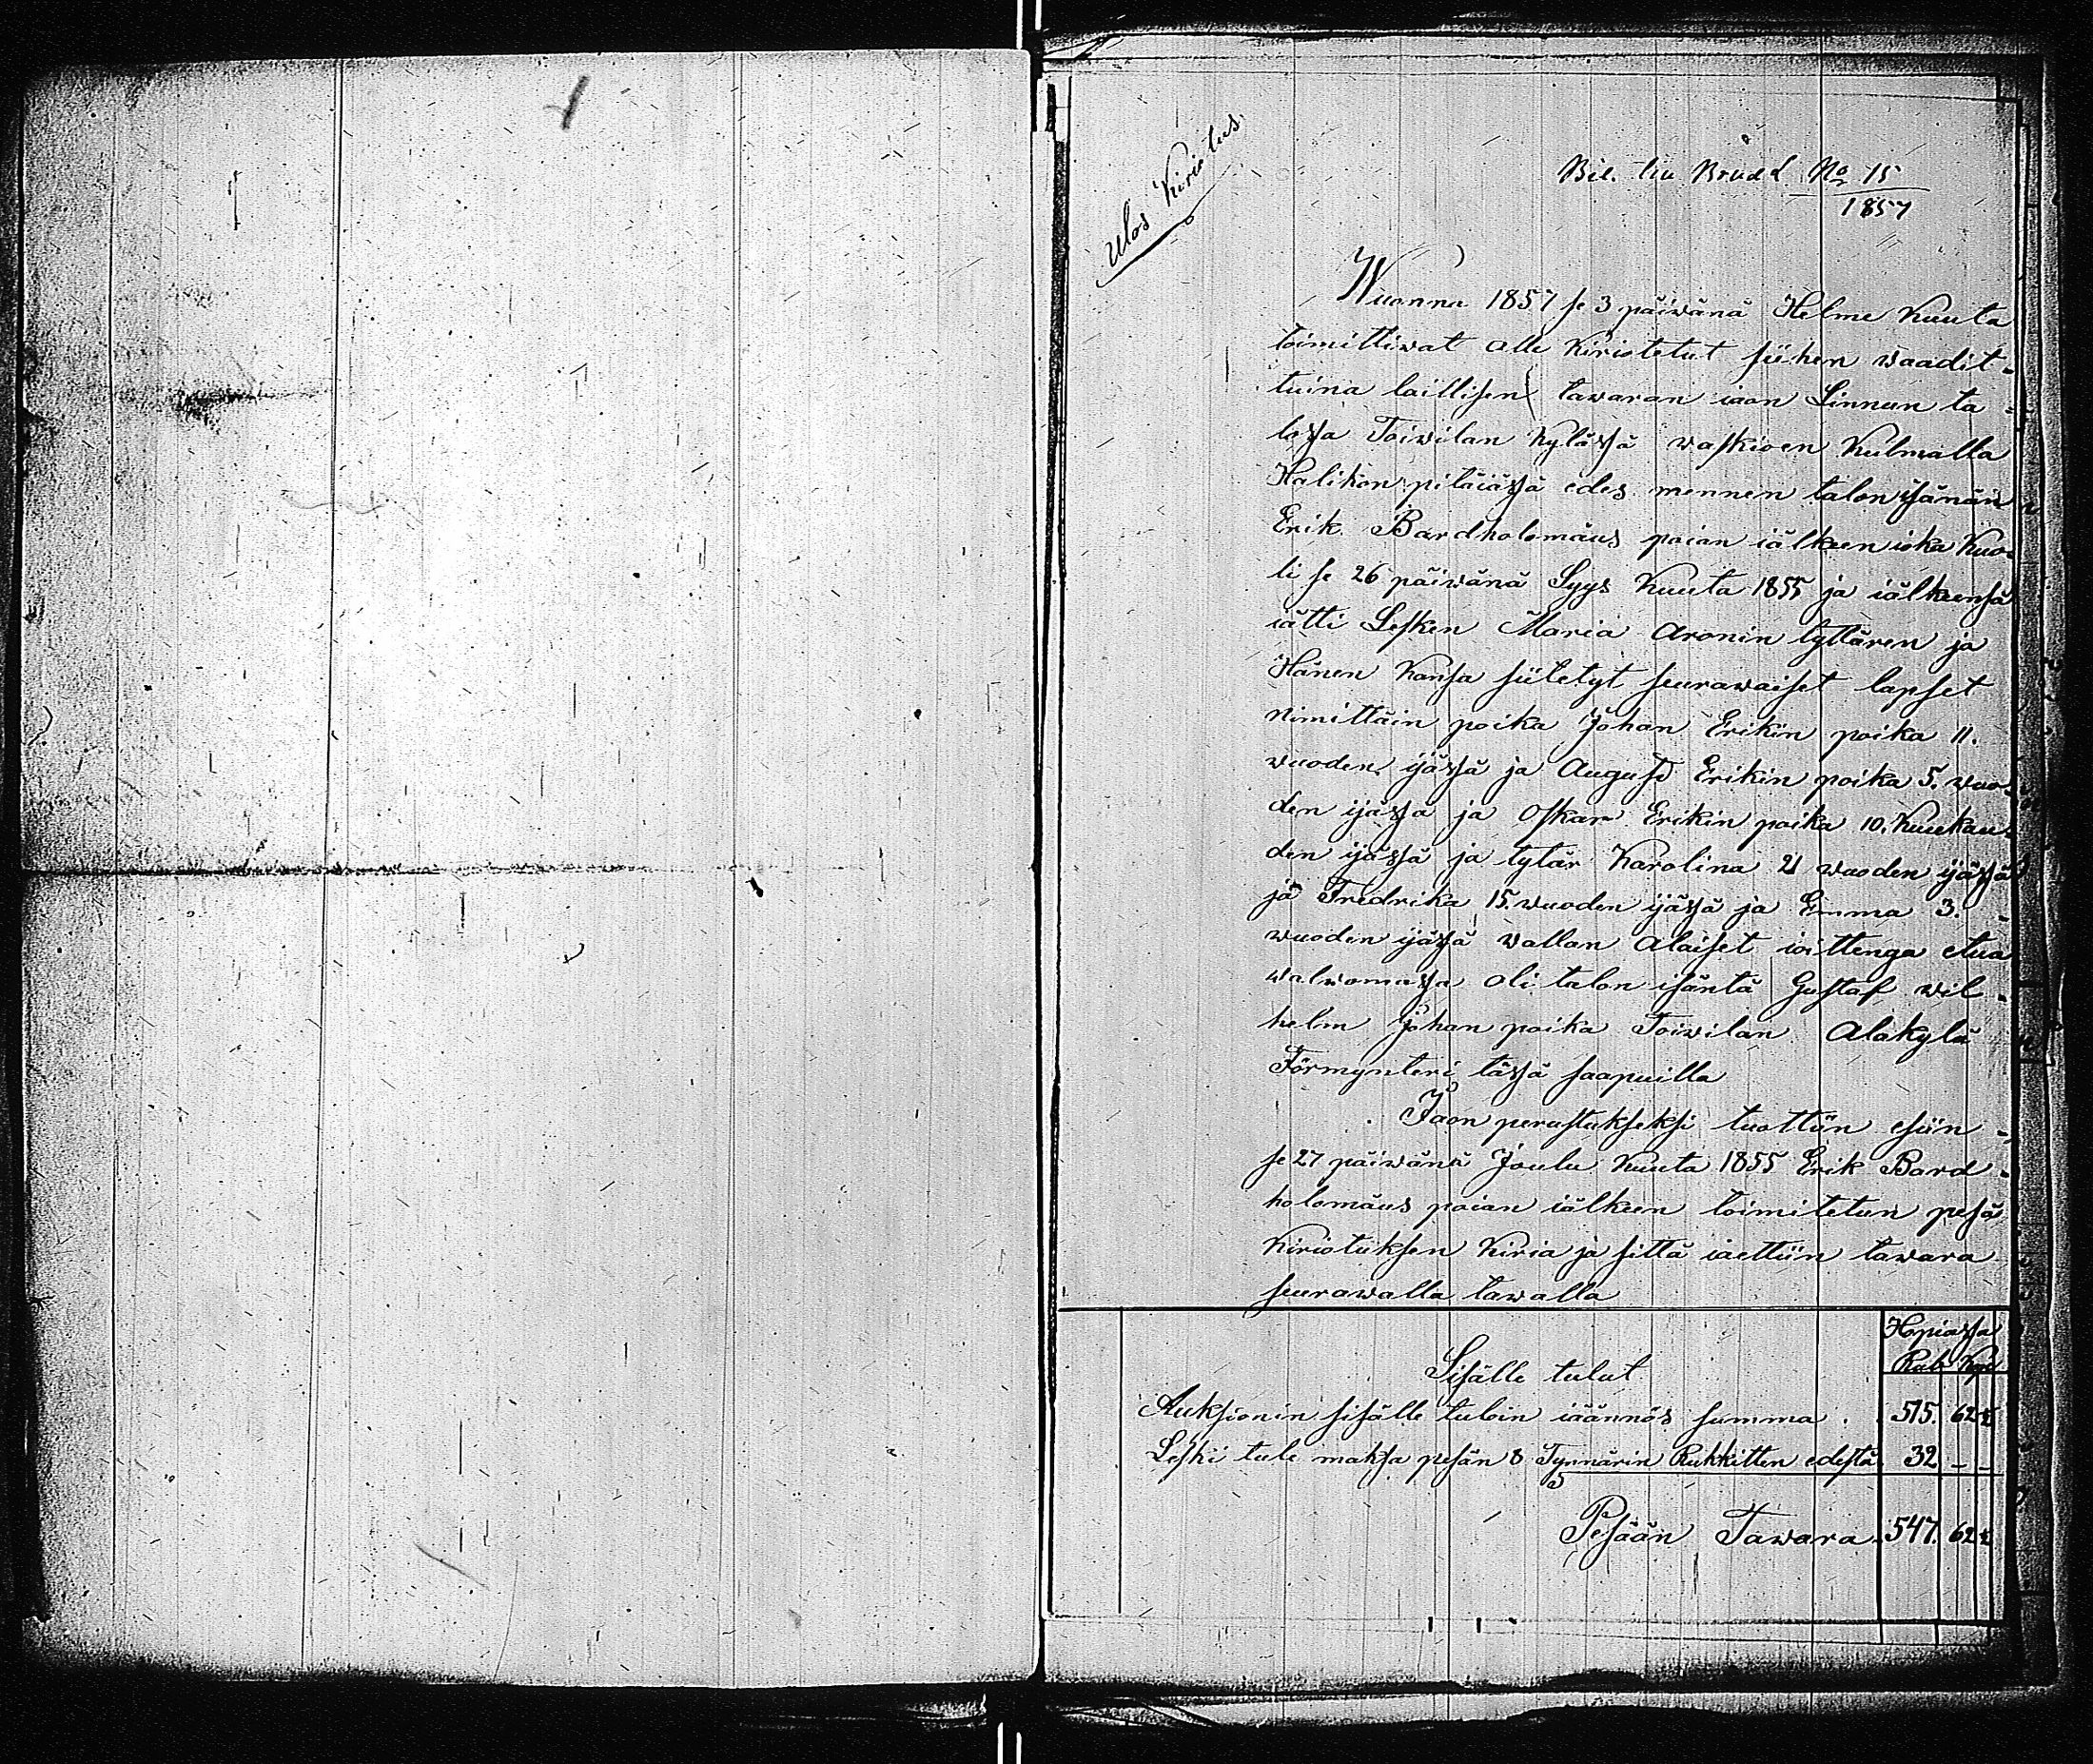 Ulos Kirio tus
Bil. liu Brudd No 15
1857
Wuonna 1857 se 3 päiwänä Helme Kuuta
toimittiwat alle Kiriotetut siihen waadit-
tuina laillisen tawaran iaon Linnun ta-
lossa Toiwilan Kylässä waskioen Kulmalla
Halikon pitäiässä edes mennen talon isänän
Erik Bardholomäus poian iälkeen ioka Kuo-
li se 26 päiwänä Syys Kuuta 1855 ja iälkeensä
iätti Lesken Maria Aronin tyttären ja
Hänen Kansa siitetyt seurawaiset lapset
nimittäin poika Johan Erikin poika 11.
wuoden ijässä ja August Erikin poika 5. wuo-
den ijässä ja Oskar Erikin poika 10. Kuukau-
den ijässä ja tytär Karolina 21 wuoden ijässä
ja Fredrika 15. wuoden ijässä ja Emma 3.
wuoden ijässä wallan alaiset ioittenga etua
walwomassa oli talon isäntä Gustaf wil-
helm Johan poika Toiwilan Alakylä
Förmynteri tässä saapuilla
Jaon perustukseksi tuottiin esiin
se 27 päiwänä Joulu Kuuta 1855 Erik Bard-
holomäus poian iälkeen toimitetun pesä
Kiriotuksen Kiria ja sittä iaettiin tawara
seurawalla tawalla
Hopiassa
Rub Kop
Sisälle tulut
Auksionin sisälle tuloin iäännös summa . 515. 62 ½
Leski tule maksa pesän 8 Tynnärin Rukkitten edestä 32 - -
Pesään Tawara. 547. 62 ½